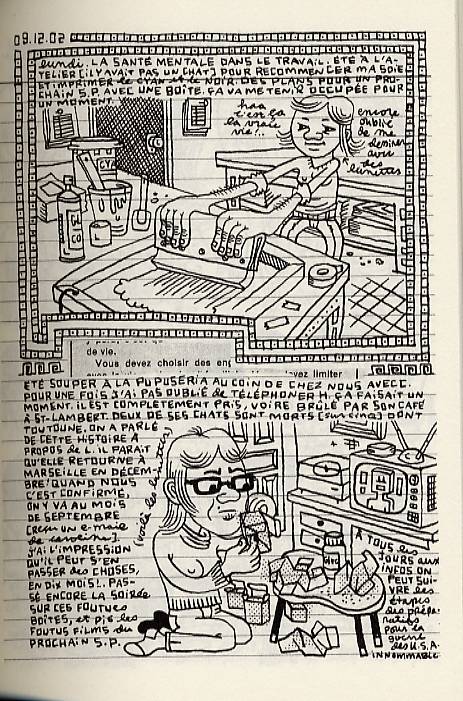 09.12.02
lundi. LA SANTÉ MENTALE DANS LE TRAVAIL. ÉTÉ À L'A-
TELIER (IL Y AVAIT PAS UN CHAT) POUR RECOMMENCER MA SOIE
ET IMPRIMER le CYAN et le NOIR. DES PLANS POUR UN PRO-
CHAIN S.P. AVEC UNE BOÎTE. ÇA VA ME TENIR OCCUPÉE POUR
UN MOMENT.
haa
c'est ça
la vraie
vie!..
encore
oublié
de me
dessiner
avec
des
lunettes
CYA
de vie.
Vous devez choisir des en
vez limiter
ÉTÉ SOUPER À LA PUPUSERIA AU COIN DE CHEZ NOUS AVEC C.
POUR UNE FOIS J'AI PAS OUBLIÉ DE TÉLÉPHONER H. ÇA FAISAIT UN
MOMENT. IL EST COMPLÈTEMENT PRIS, VOIRE BRÛLÉ PAR SON CAFÉ
À ST-LAMBERT. DEUX DE SES CHATS SONT MORTS DONT
TOUTOUNE. ON A PARLÉ
DE CETTE HISTOIRE À
PROPOS DE L. IL PARAÎT
QU'ELLE RETOURNE À
MARSEILLE EN DÉCEM-
BRE! QUAND NOUS
C'EST CONFIRMÉ,
ON Y VA AU MOIS
DE SEPTEMBRE
(reçu un e-maie
de).
J'AI L'IMPRESSION
QU'IL PEUT S'EN
PASSER DES CHOSES,
EN DIX MOIS!. PAS-
SÉ ENCORE LA SOIRÉE
SUR CES FOUTUES
BOÎTES, et pis les
FOUTUS FILMS du
PROCHAIN S.P.
(voilà les lunettes)
À TOUS les
JOURS aux
INFOS ON
PEUT SUI-
VRE les
étapes
des prépa-
ratifs
pour la
guerre
des U.S.A.
INNOMMABLE